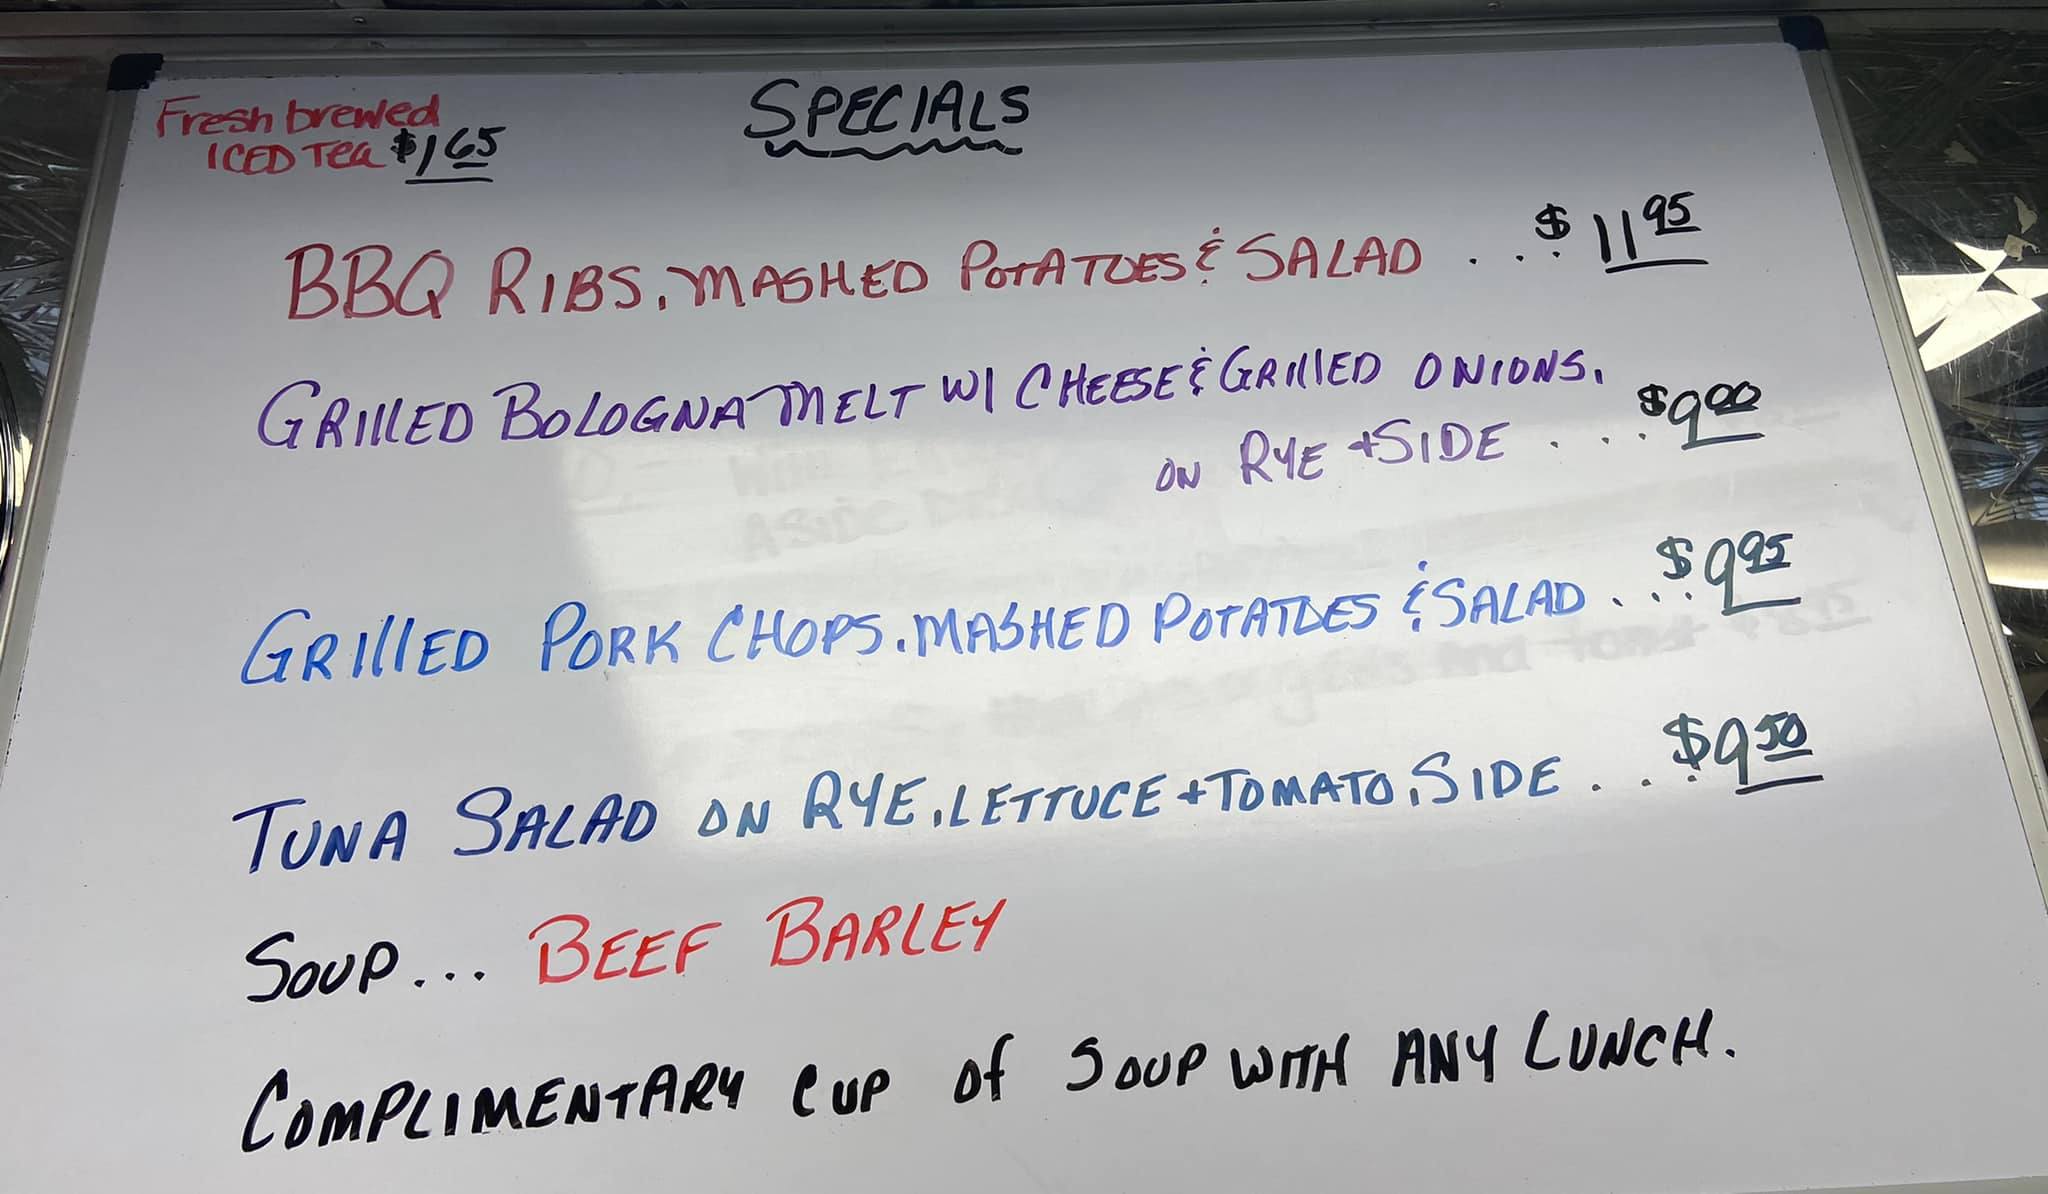 Fresh brewed
ICED Tea $1.65
SPECIALS
BBQ RIBS, MASHED POTATOES & SALAD ... $11.95
GRILLED BOLOGNA MELT W/ CHEESE & GRILLED ONIONS,
ON RYE + SIDE .... $9.00
GRILLED PORK CHOPS, MASHED POTATOES & SALAD .... $9.95
TUNA SALAD ON RYE, LETTUCE + TOMATO, SIDE ... $9.50
SOUP... BEEF BARLEY
COMPLIMENTARY CUP OF SOUP WITH ANY LUNCH.